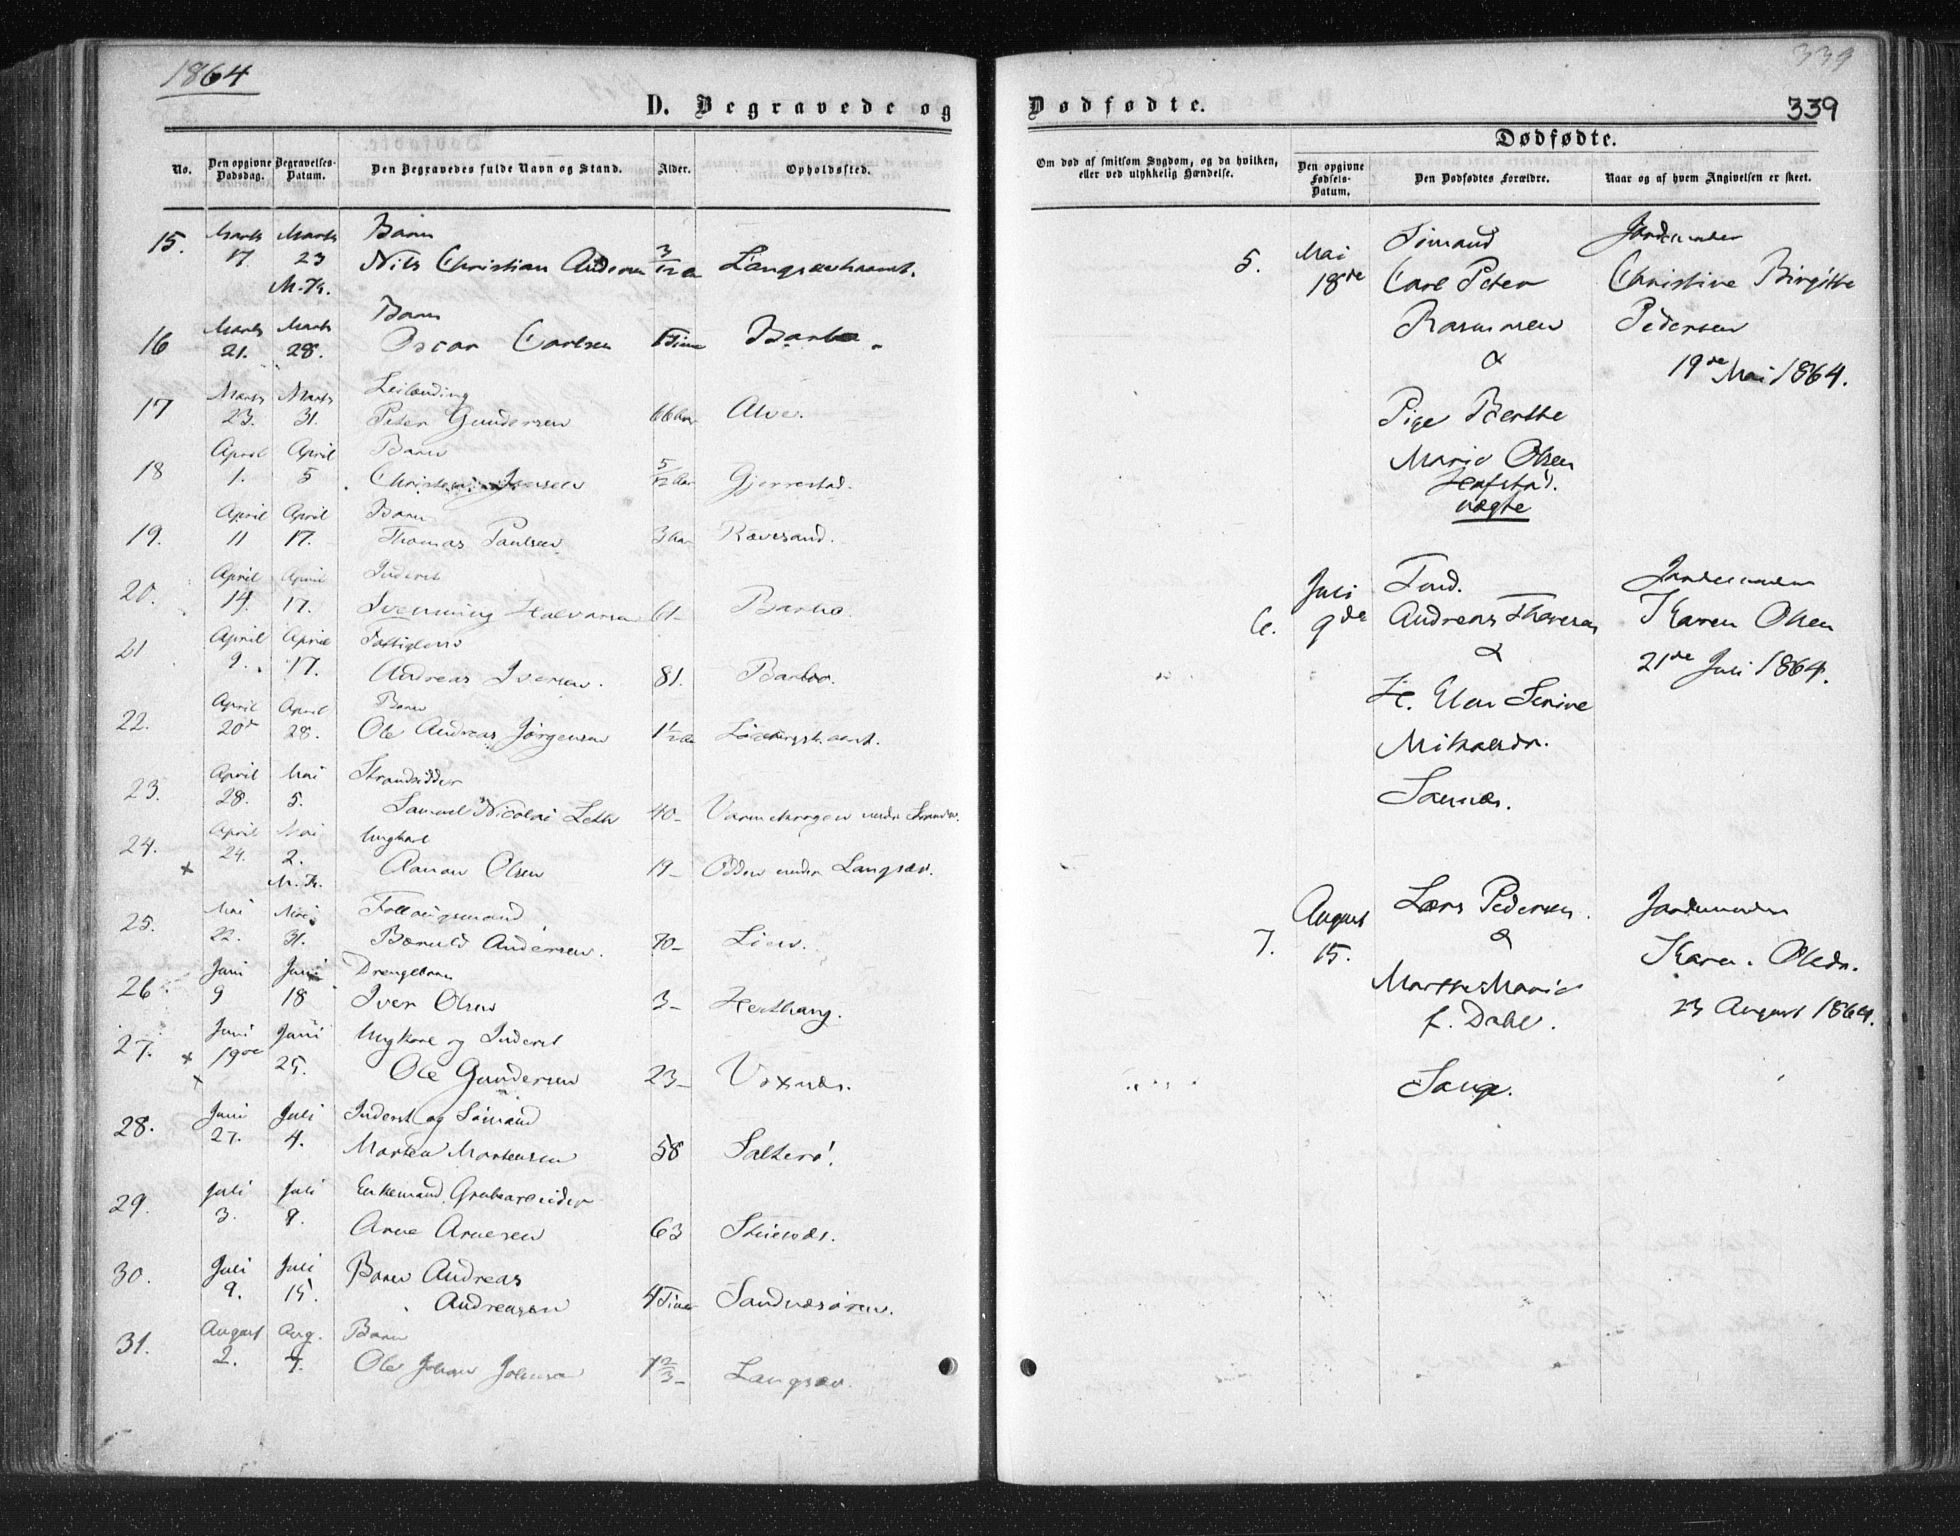 1864
339
D. Begravede og
Dødfødte.
339
Dødfødte.
No.
Den opgivne Dødsdag.
Begravelses-Datum.
Den Begravedes fulde Navn og Stand.
Alder.
Opholdssted.
Om død af smitsom Sygdom, og da hvilken, eller ved ulykkelig Hændelse.
Den opgivne Fødsels-Datum.
Den Dødfødtes Forældre.
Naar og af hvem Angivelsen er skeet.
Marts Marts Barn
15. 17. 23 Nils Christian 3/12
M.K.
Marts Marts Barn
16 21. 28. Oscar Carlsen Barbo
Marts Marts Leilending
17 23. 31. Peter Gundersen 66 Aar Alve
April April Barn
18 1. 5 Jensen 5/12 Aar Gjerrestad.
April April Barn
19. 11 17. Thomas Paulsen 3 Aar Rævesand.
April April Inderst
20. 14. 17. Halvorsen 61- Barbo
April April
21 9. 17. Andreas Iversen. 81. Barbo.
April April Barn
22. 20de 28. Ole Andreas Jørgensen 1 1/2
April Mai Strandsidder
23. 28. 5. Samuel Nicolai Leth 40-
April Mai Ungkarl
24. 24. 2. Olsen 19- Odden under Langsæv.
M.K.
Mai Mai
25. 22. 31. Andersen. 70- Lien.
Juni Juni Drengebarn
26 9 18 Iver Olsen 3-
Juni Juni Ungkarl og Inderst
27. 19de 25. Ole Gundersen 23- Voxnæs.
Juni Juli Inderst og Sömand
28. 27. 4. Morten Mortensen 58 Salterö.
Juli Juli Enkemand, Grubearbeider
29. 3. 9. Arne Arnesen 63
Juli Juli Barn Andreas
30. 9. 15. Andreasen 4 Timer Sandnæs
August Aug. Barn
31. 2. 7. Ole Johan 1 2/3- Langsæv.
5. Mai 18de
Sömand
Carl Peter
Rasmussen
&
Pige Berthe
Marie Olsen
Hafstad.
uægte
Jordemoder
Christine Birgitte
Pedersen
19de Mai 1864.
6. Juli 9de
Andreas
&
H. Elen
Jordemoder
Karen Olsen
21de Juli 1864.
7. August 15.
Lars Pedersen.
&
Marthe Marie
f. Dahl.
Sange.
Jordemoder
Karen Olsdr.
23 August 1864.